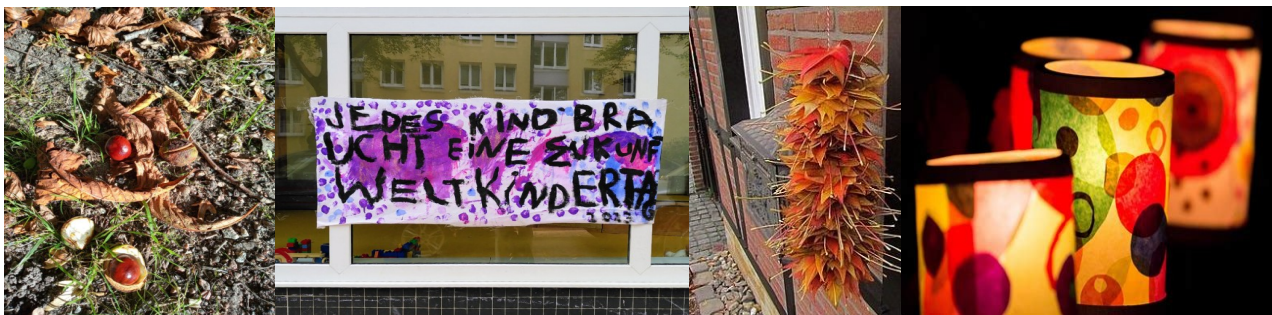 JEDES KIND BRA
UCHT EINE ZUKUNF
WELTKINDERTA
2023 G